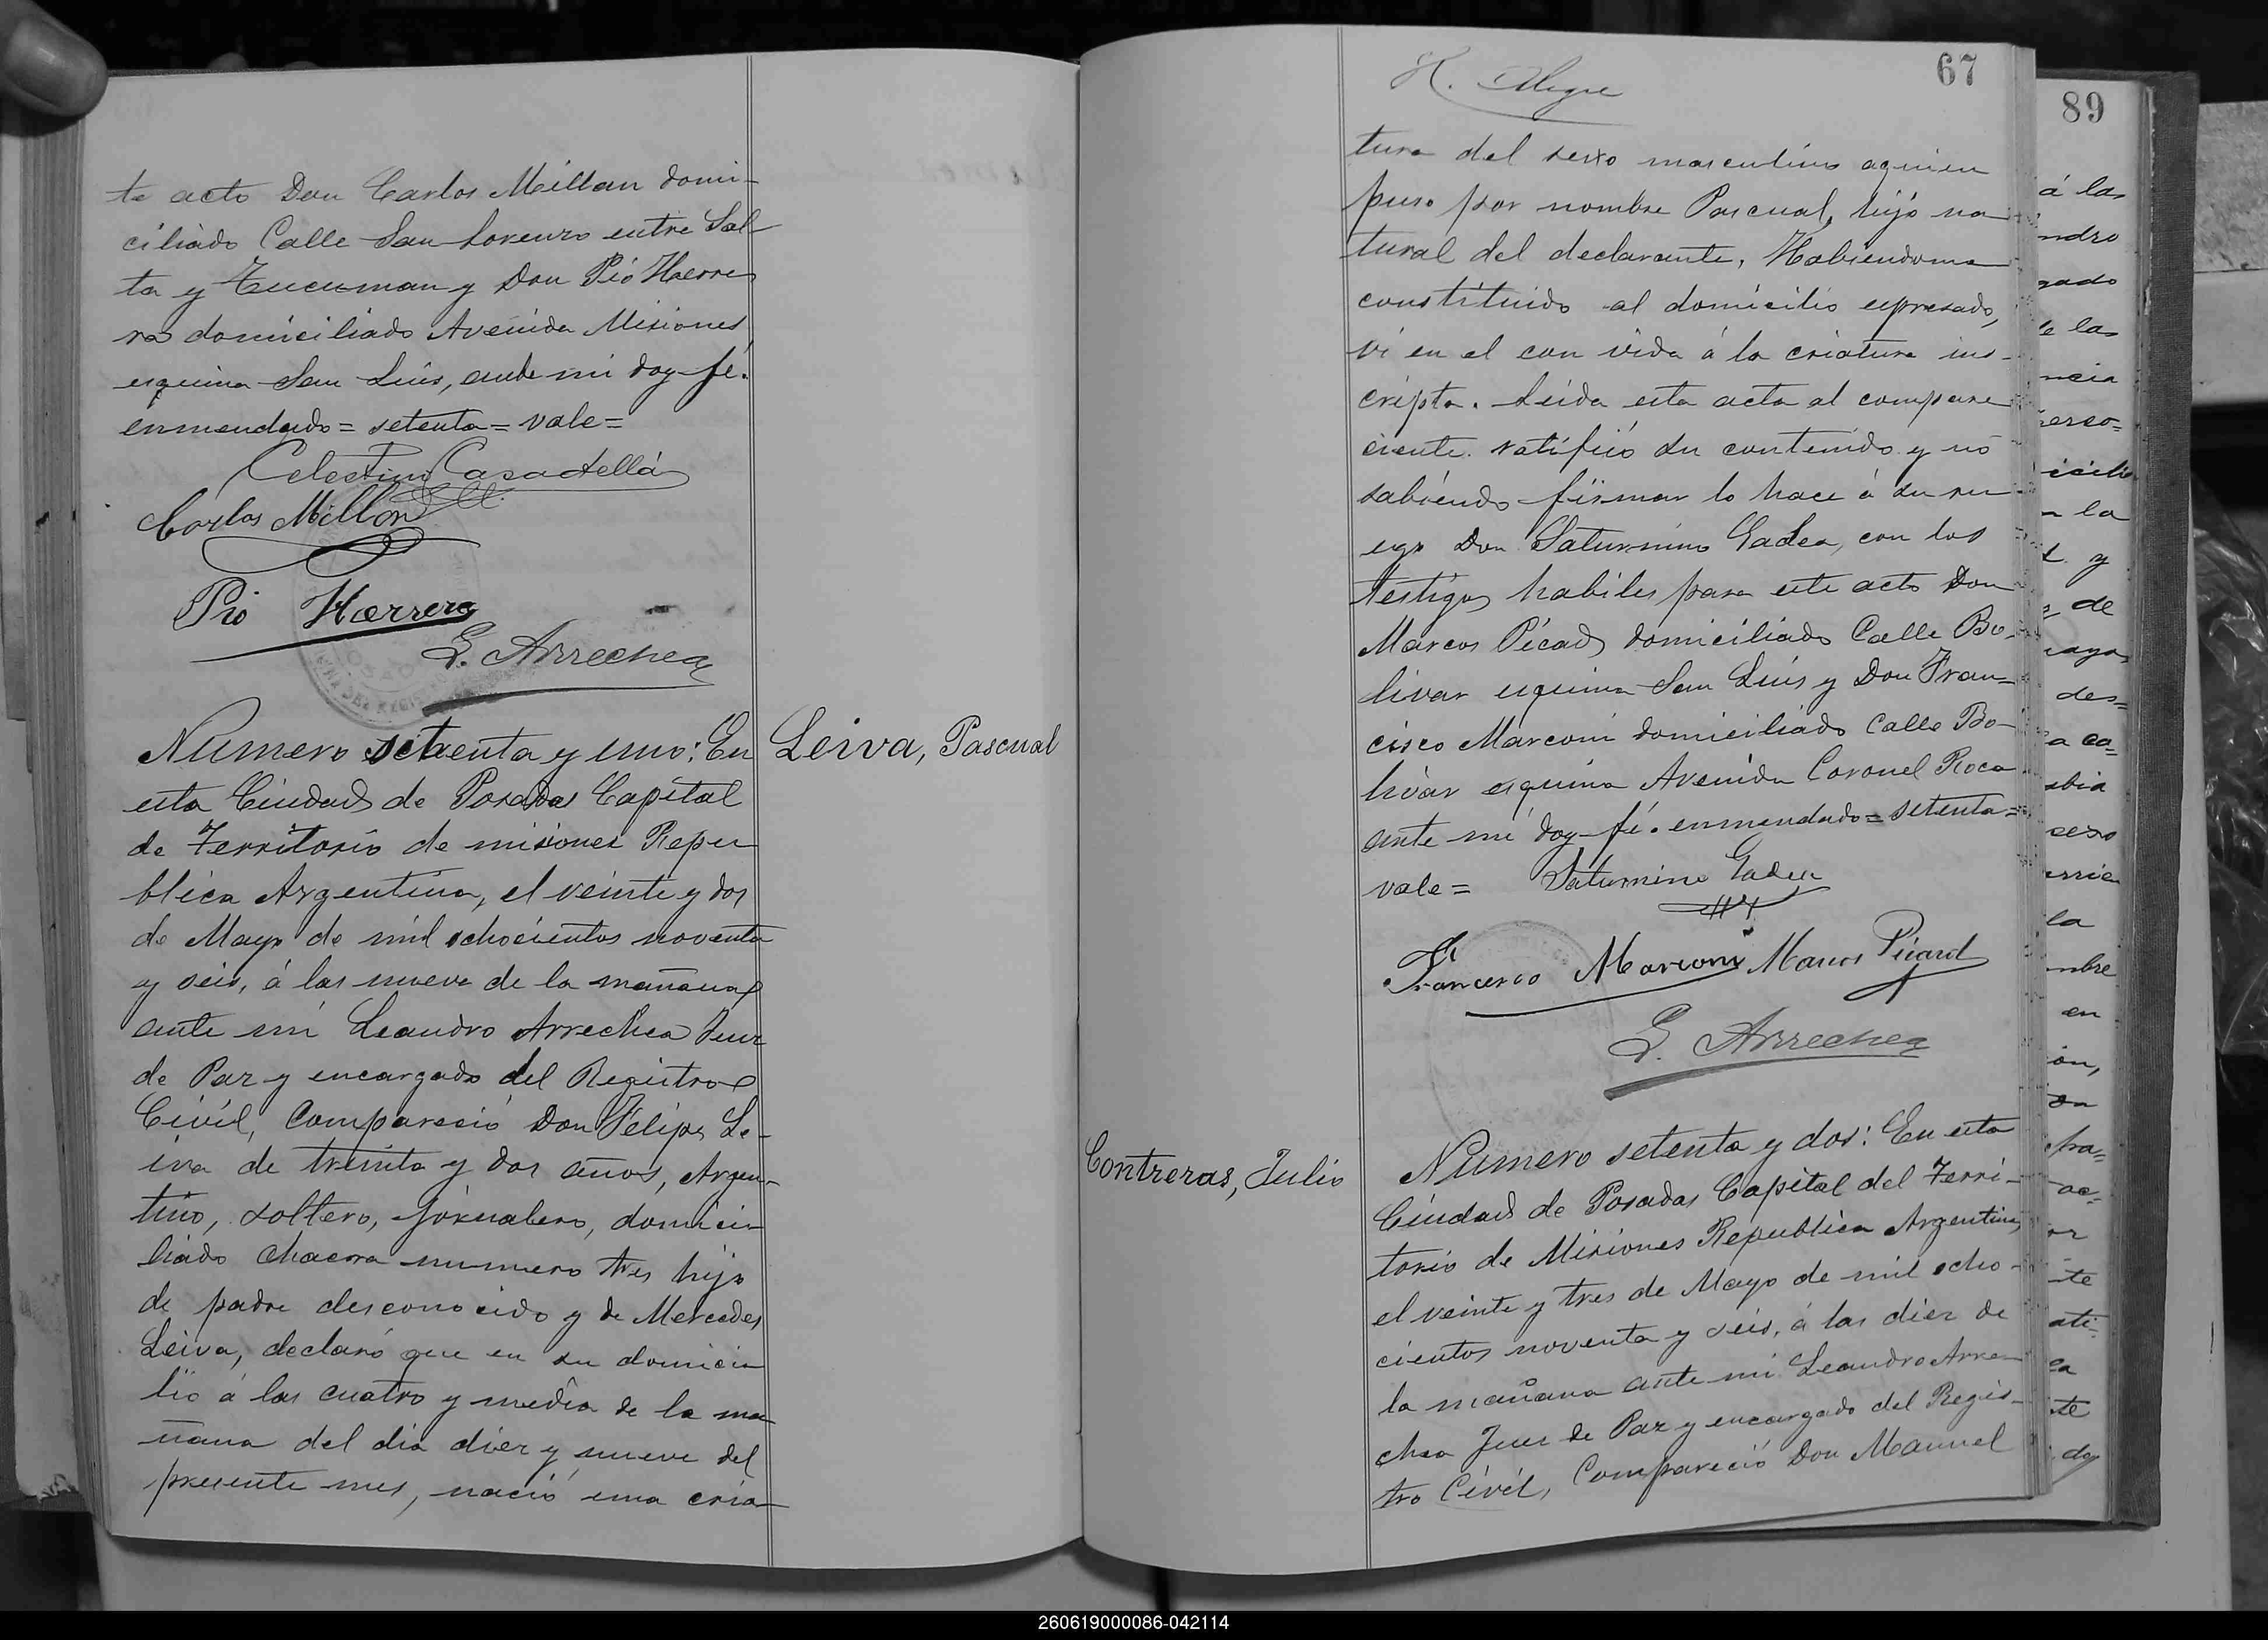 te acto Don Carlos Millan domi-
ciliado Calle San Lorenzo entre Sal-
ta y Tucuman y Don Pio Herre
ra domiciliado Avenida Misiones
esquina San Luis, ante mi doy fé.
enmendado = setenta = vale =
Celestino Casadellá
Carlos Millan
Pio Herrera
L. Arrechea
Leiva, Pascual
Numero setenta y uno: En
esta Ciudad de Posadas Capital
de Territorio de misiones Repu
blica Argentina, el veinte y dos
de Mayo de mil ochocientos noventa
y seis, á las nueve de la mañana
ante mi Leandro Arrechea Juez
de Paz y encargado del Registro
Civil, Compareció Don Felipe Le-
iva de treinta y dos años, Argen-
tino, soltero, jornalero, domici
liado chacra numero tres hijo
de padre desconocido y de Mercedes
Leiva, declaró que en su domici
lio á las cuatro y media de la ma
ñana del dia diez y nueve del
presente mes, nació una cria
H. Alegre
67
tura del sexto masculino aquien
puso por nombre Pascual, hijo na
tural del declarante, Habiendome
constituido al domicilio expresado,
vi en el con vida á la criatura ins-
cripta. Leida esta acta al compare
ciente ratificó su contenido y nó
sabiendo firmar lo hace á su ru
ego Don Saturnino Gadea, con los
testigos habiles para este acto Don
Marcos Picad domiciliado Calle Bo-
livar esquina San Luis y Don Fran=
cisco Marconi domiciliado Calle Bo-
livar esquina Avenida Coronel Roca
ante mi doy fé. enmendado = setenta =
vale = Saturnino Gadea
Francesco Marconi Marcos Picard
L. Arrechea
Contreras, Julio
Numero setenta y dos: En esta
Ciudad de Posadas Capital del Terri-
torio de Misiones Republica Argentina,
el veinte y tres de Mayo de mil ocho-
cientos noventa y seis, á las diez de
la mañana ante mi Leandro Arre
chea Juez de Paz y encargado del Regis-
tro Civil, Compareció Don Manuel
89
á las
ndro
gado
de las
ncia
erso=
icilio
n la
t y
de
des=
a ca=
sexo
la
mbre
en
ón,
pra=
ac=
or
te
ati-
ca
te
doy
260619000086-042114